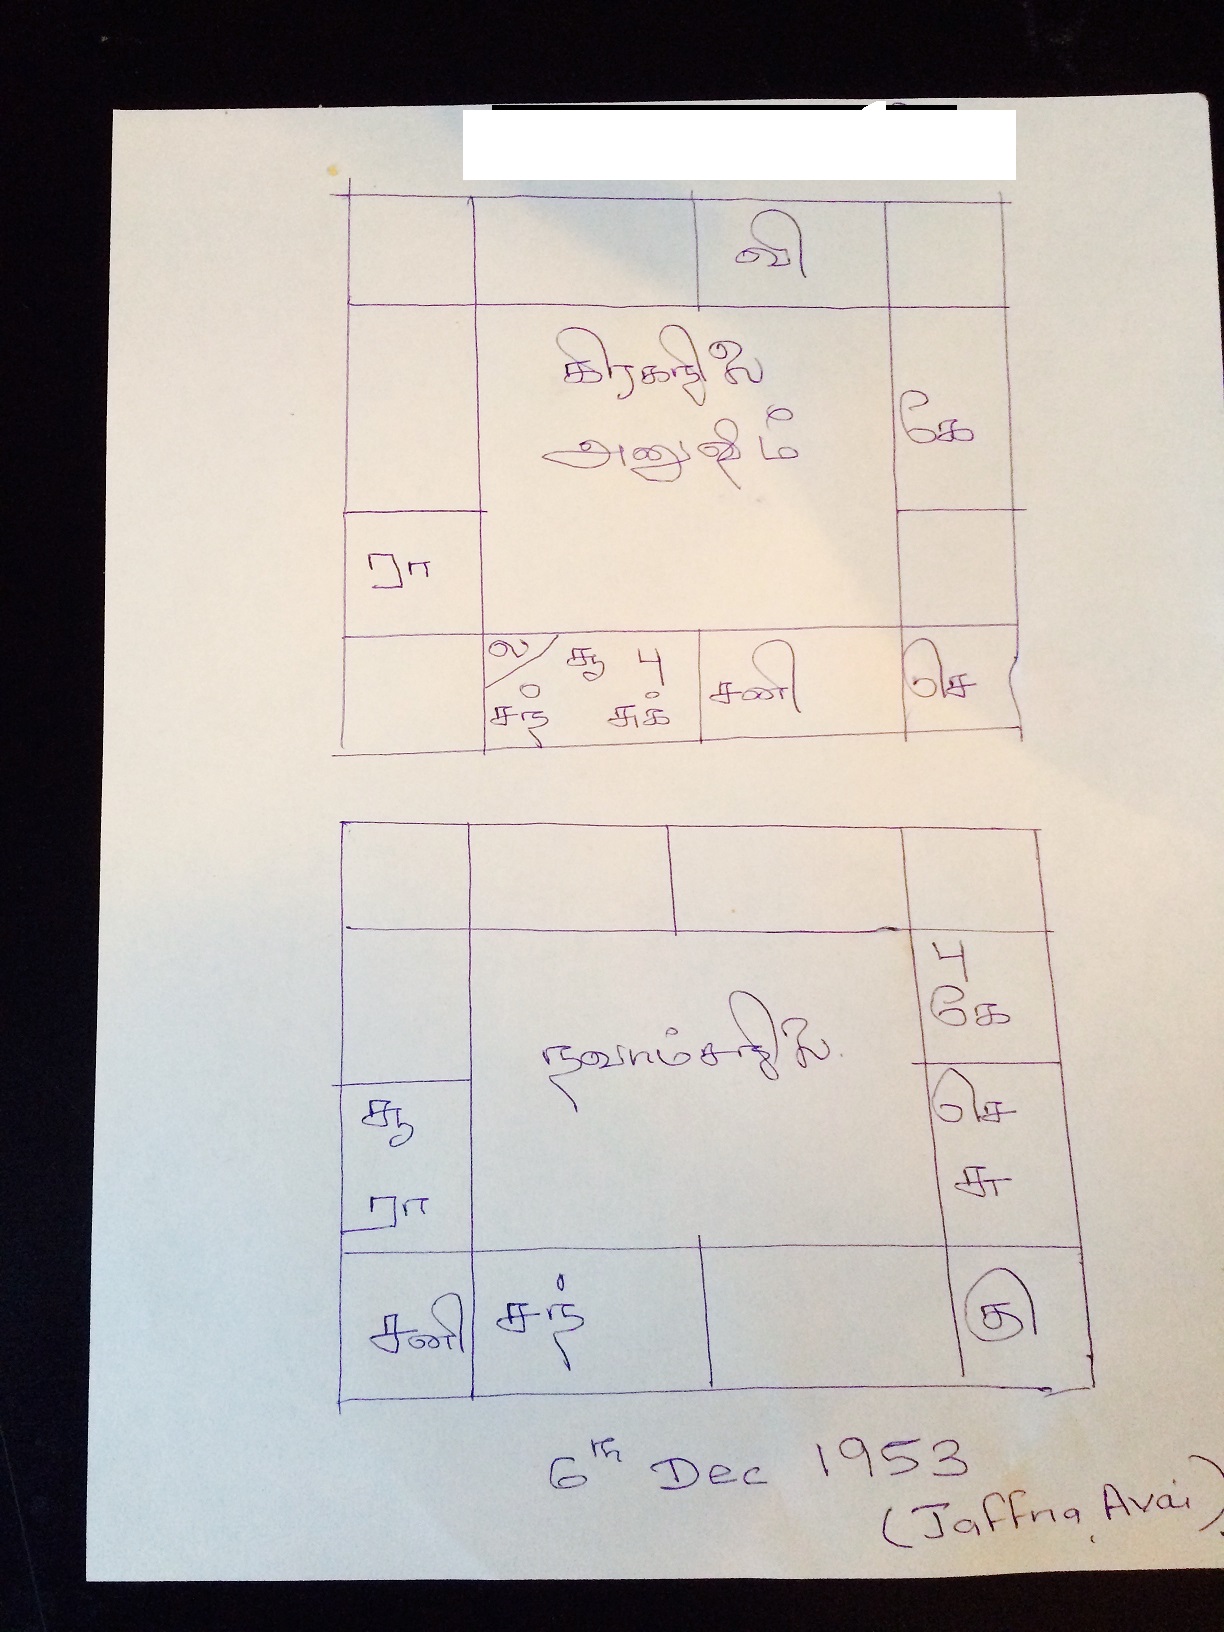 வி
கிரகநிலை
அனுஷம்
கே
ரா
ல சூ பு
சந் சுக்
சனி
செ
பு
கே
நவாம்சநிலை
செ
சூ
ரா
சனி
சந்
6th Dec 1953
(Jaffna, Avai)